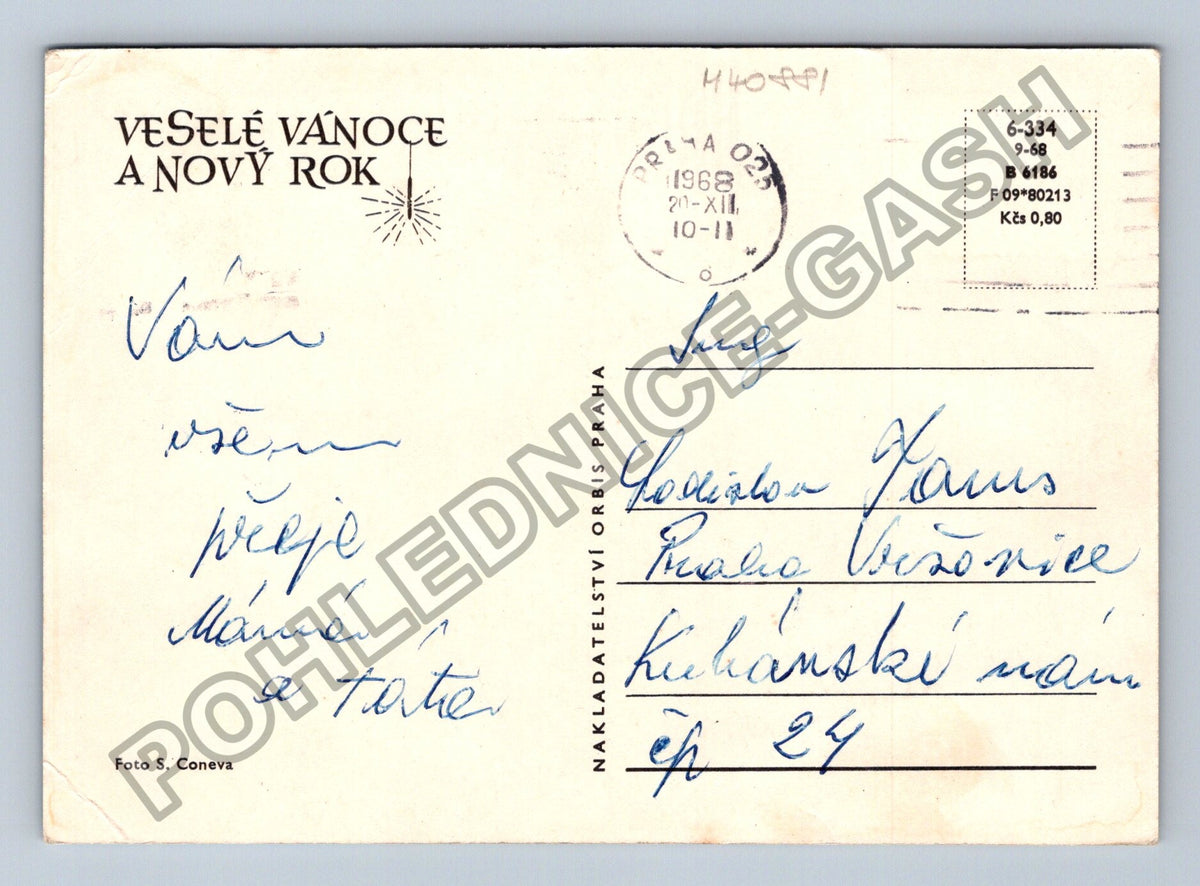 VESELÉ VÁNOCE
A NOVÝ ROK
M40881
PRAHA 025
1968
20-XII
10-11
6-334
9-68
B 6186
F 09*80213
Kčs 0,80
Vám
všem
přeje
Máma
a táta
Foto S. Coneva
NAKLADATELSTVÍ ORBIS PRAHA
Ing
Ladislav
Praha Vršovice
Kubánské nám
čp 24
POHLEDNICE-GASH